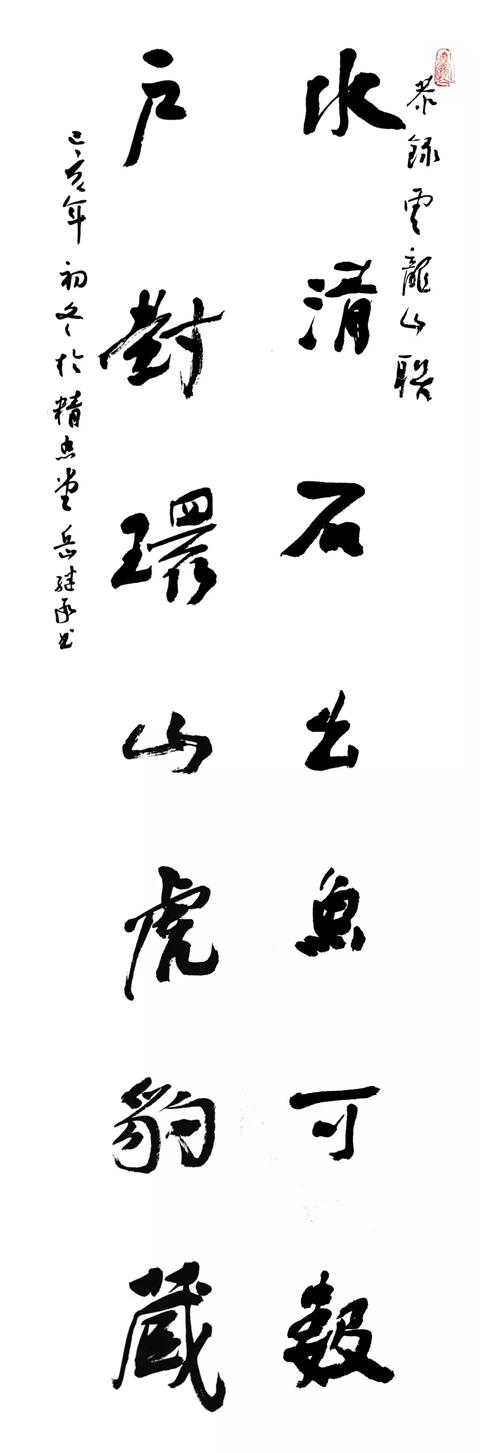 恭録雲龍山聯
水清石出魚可數
戶對環山虎豹藏
己亥年初冬於精忠堂岳建国书